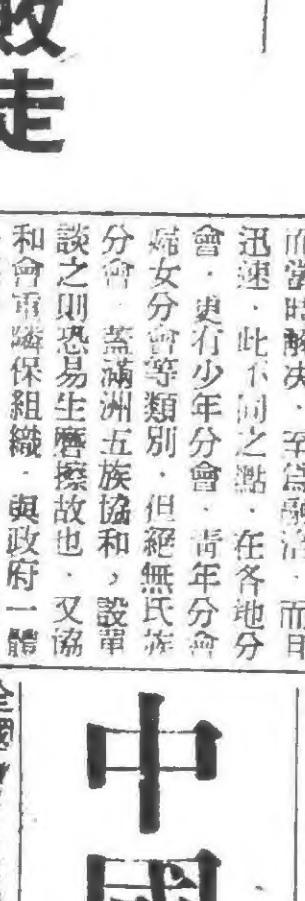 敗走
而當時解決．至爲融洽．而且
迅速．此不同之點．在各地分
會．更有少年分會．靑年分會
婦女分會等類別．但絕無民族
分會．蓋滿洲五族協和，設單
談之則恐易生磨擦故也．又協
和會重隣保組織．與政府一體
中國
全國